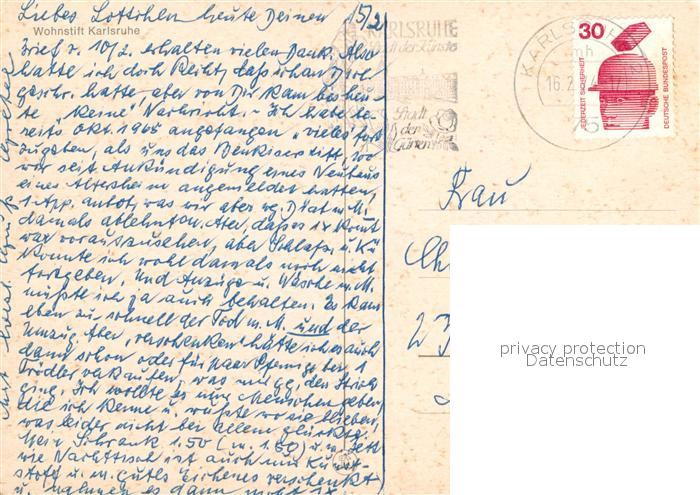 Liebes Lottchen heute Deinen 15/2
Wohnstift Karlsruhe
Brief v. 10/2 erhalten vielen Dank. Also
hatte ich doch Recht, daß ich an Dich
geschr. hatte aber von Dir kam bis heu-
te "keine" Nachricht. - Ich habe be-
reits Okt. 1965 angefangen "vieles fort
zugeben, als uns das
wir seit Ankündigung eines Neubaus
eines Altersheim angemeldet hatten,
1 App. anbot, was wir aber wg. m. M.
damals ablehnten. Aber, daß es 1x kommt
war vorauszusehen, aber Schlafz. u. Kü
konnte ich wohl damals noch nicht
fortgeben. Und Anzüge u. Wäsche m. M.
mußte ich ja auch behalten. Es kam
eben zu schnell der Tod m. M. und der
Umzug. Aber, verschenken hätte ich es auch
dann schon oder für paar Pfennige bei 1
Trödler verkaufen, was mir geg. den Strich
ging. Ich wollte es nur Menschen geben,
die ich kenne u. wüßte wo sie blieben,
was leider nicht bei allem glückte.
Mein Schrank 1.50 (m. 1.60) u. m. Bett
wie Nachttisch ist auch nur Kunst-
stoff u. m. gutes Eichenes verschenkt
u. nahmen es dann nicht 1x
KARLSRUHE
Stadt der Künste
Stadt
der
Gärten
KARLSRUHE
mh
16.2.
75
30
JEDERZEIT SICHERHEIT
DEUTSCHE BUNDESPOST
Frau
privacy protection
Datenschutz